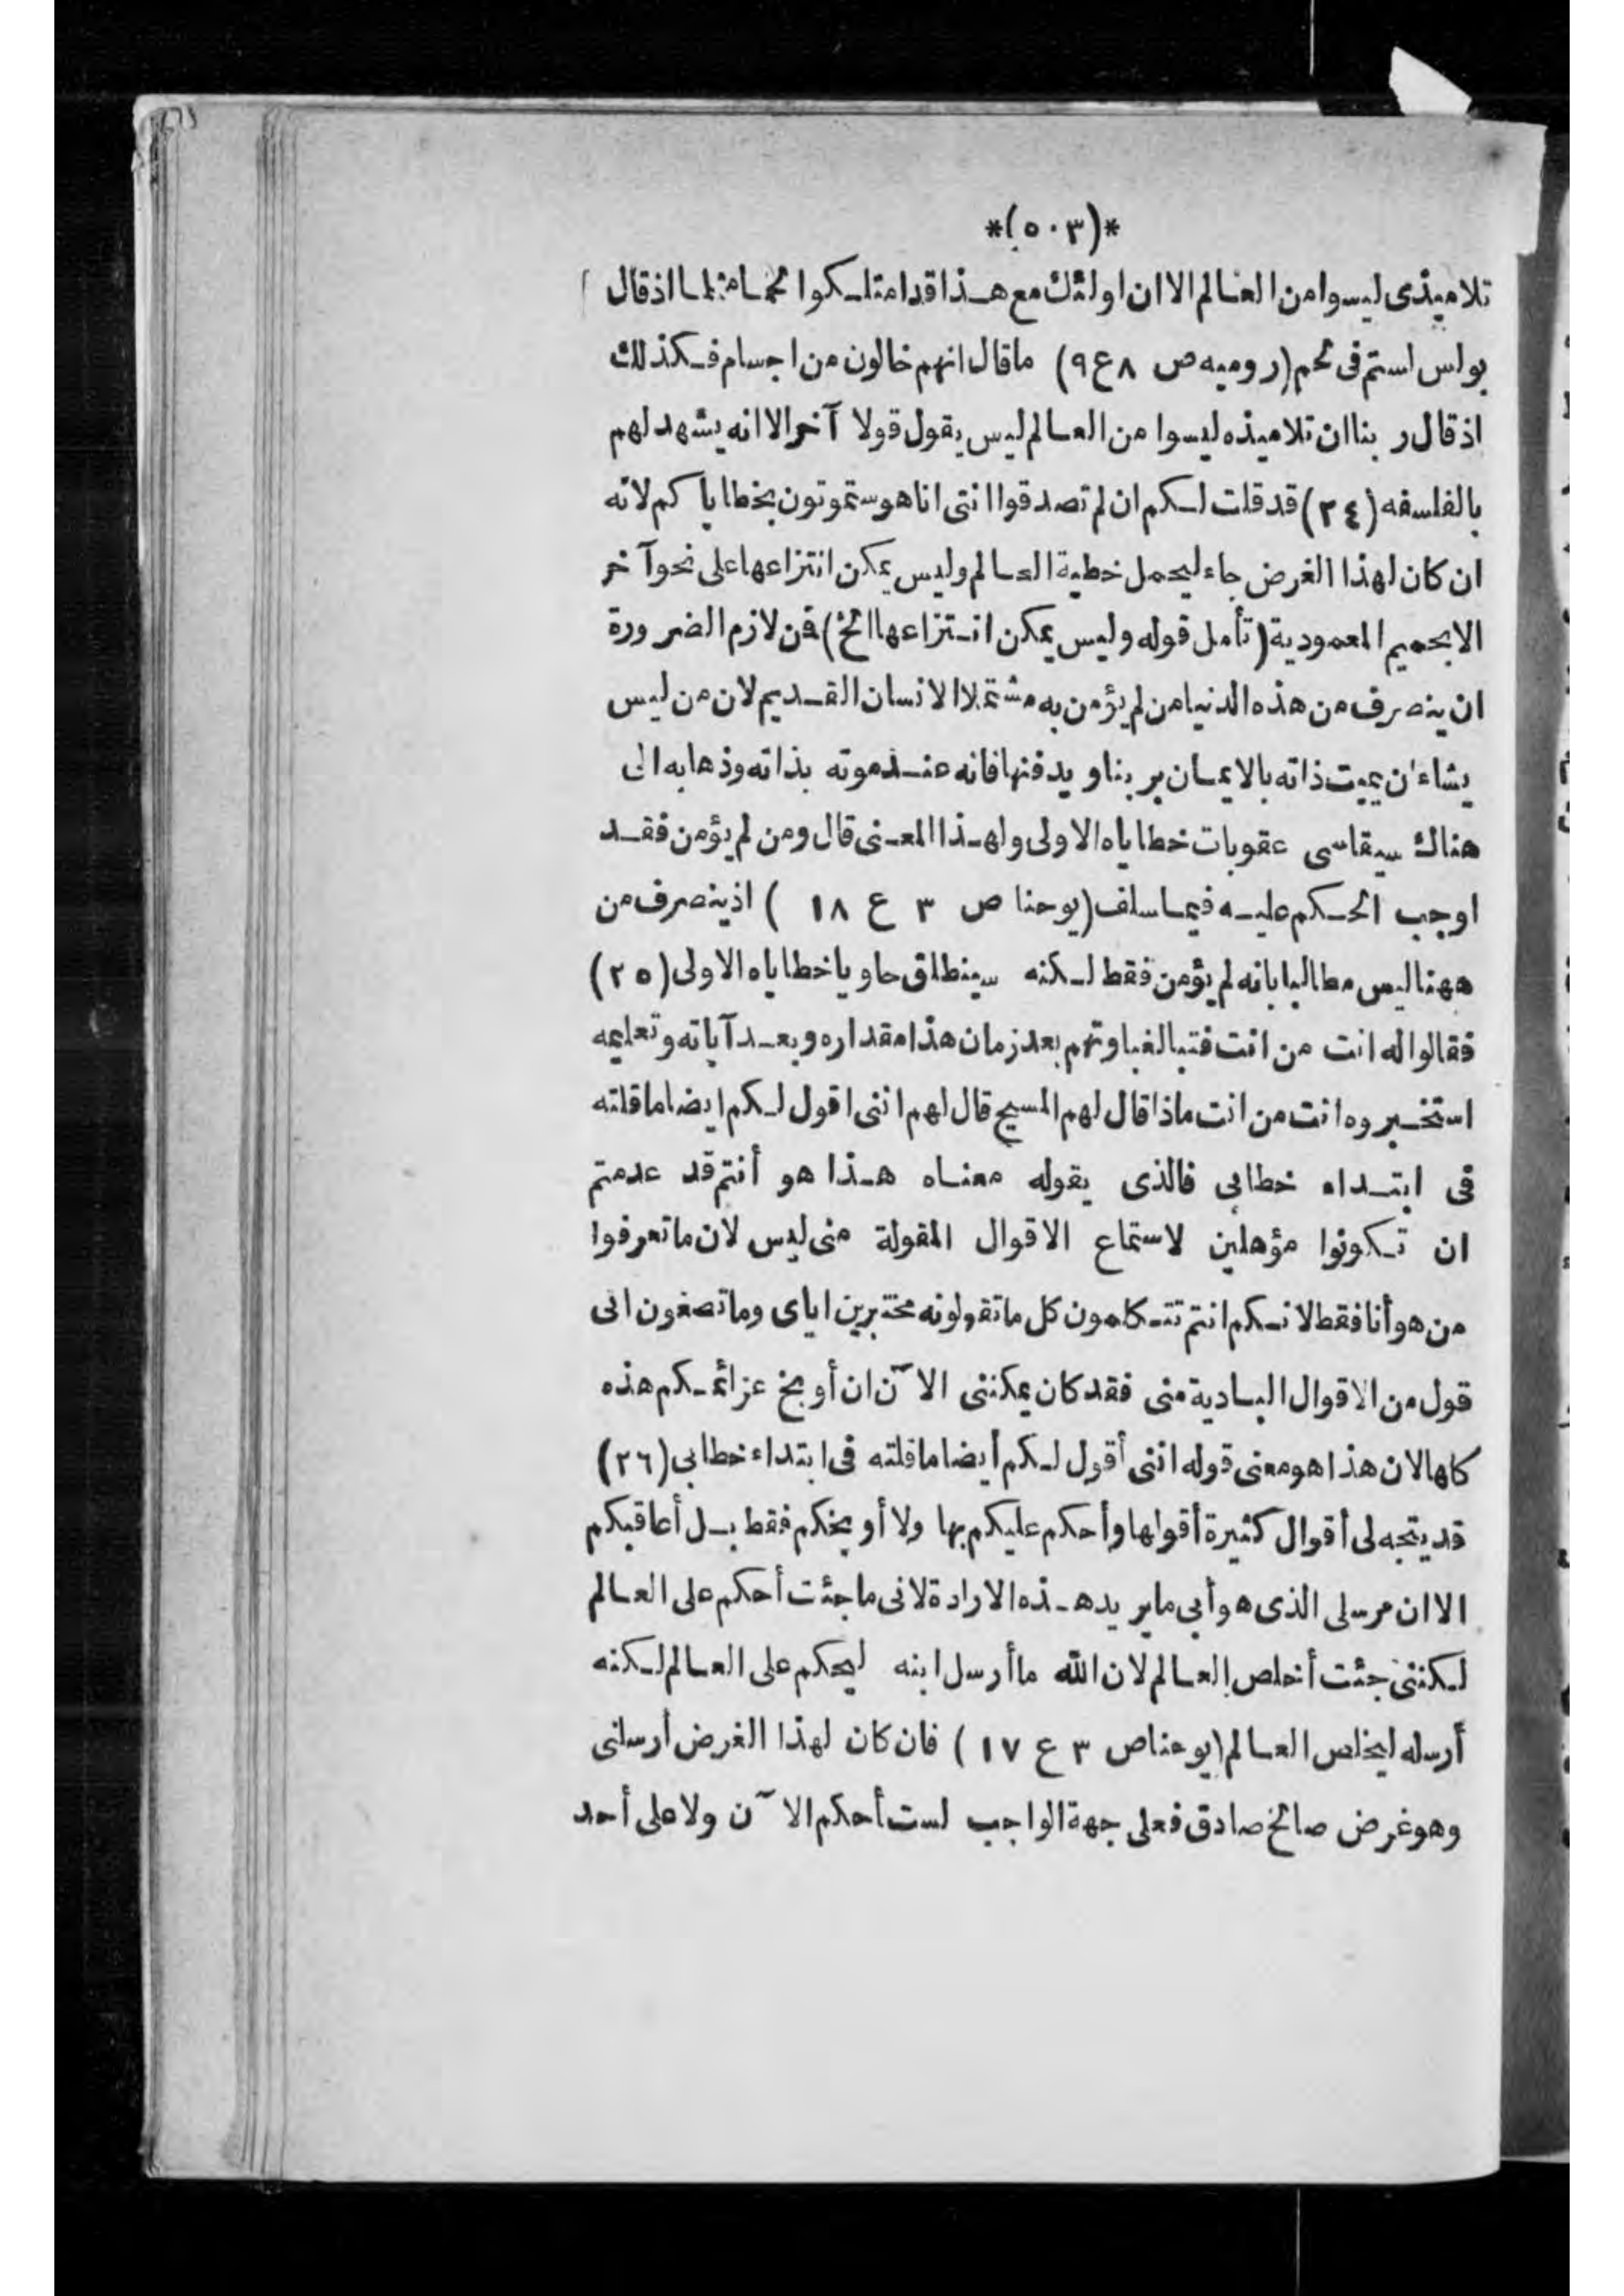 *(٥٠٣)*
تلاميذى ليسوا من العالم الا ان اولئك مع هذا قد امتلكوا لحما مثلما اذ قال
بولس لستم فى لحم (روميه ص ٨ ع ٩) ما قال انهم خالون من اجسام فكذلك
اذ قال ربنا ان تلاميذه ليسوا من العالم ليس يقول قولا آخر الا انه يشهد لهم
بالفلسفه (٢٤) قد قلت لكم ان لم تصدقوا اننى انا هو ستموتون بخطاياكم لانه
ان كان لهذا الغرض جاء ليحمل خطية العالم وليس يمكن انتزاعها على نحو آخر
الا بحميم المعمودية (تأمل قوله وليس يمكن انتزاعها الخ) فمن لازم الضرورة
ان ينصرف من هذه الدنيا من لم يؤمن به مشتملا الانسان القديم لان من ليس
يشاء ان يميت ذاته بالايمان بربنا ويدفنها فانه عند موته بذاته وذهابه الى
هناك سيقاسى عقوبات خطاياه الاولى ولهذا المعنى قال ومن لم يؤمن فقد
اوجب الحكم عليه فيما سلف (يوحنا ص ٣ ع ١٨ ) اذ ينصرف من
ههنا ليس مطالبا بانه لم يؤمن فقط لكنه سينطلق حاويا خطاياه الاولى (٢٥)
فقالوا له انت من انت فتبا لغباوتهم بعد زمان هذا مقداره وبعد آياته وتعليمه
استخبروه انت من انت ماذا قال لهم المسيح قال لهم اننى اقول لكم ايضا ما قلته
فى ابتداء خطابى فالذى يقوله معناه هذا هو أنتم قد عدمتم
ان تكونوا مؤهلين لاستماع الاقوال المقولة منى ليس لان ما تعرفوا
من هو أنا فقط لانكم انتم تتكلمون كل ما تقولونه مختبرين اياى وما تصغون الى
قول من الاقوال البادية منى فقد كان يمكننى الآن ان أوبخ عزائمكم هذه
كلها لان هذا هو معنى قوله اننى أقول لكم أيضا ما قلته فى ابتداء خطابى (٢٦)
قد يتجه لى أقوال كثيرة أقولها وأحكم عليكم بها ولا أوبخكم فقط بل أعاقبكم
الا ان مرسلى الذى هو أبى ما يريد هذه الارادة لانى ما جئت أحكم على العالم
لكننى جئت أخلص العالم لان الله ما أرسل ابنه ليحكم على العالم لكنه
أرسله ليخلص العالم (يوحنا ص ٣ ع ١٧ ) فان كان لهذا الغرض أرسلنى
وهو غرض صالح صادق فعلى جهة الواجب لست أحكم الآن ولا على أحد